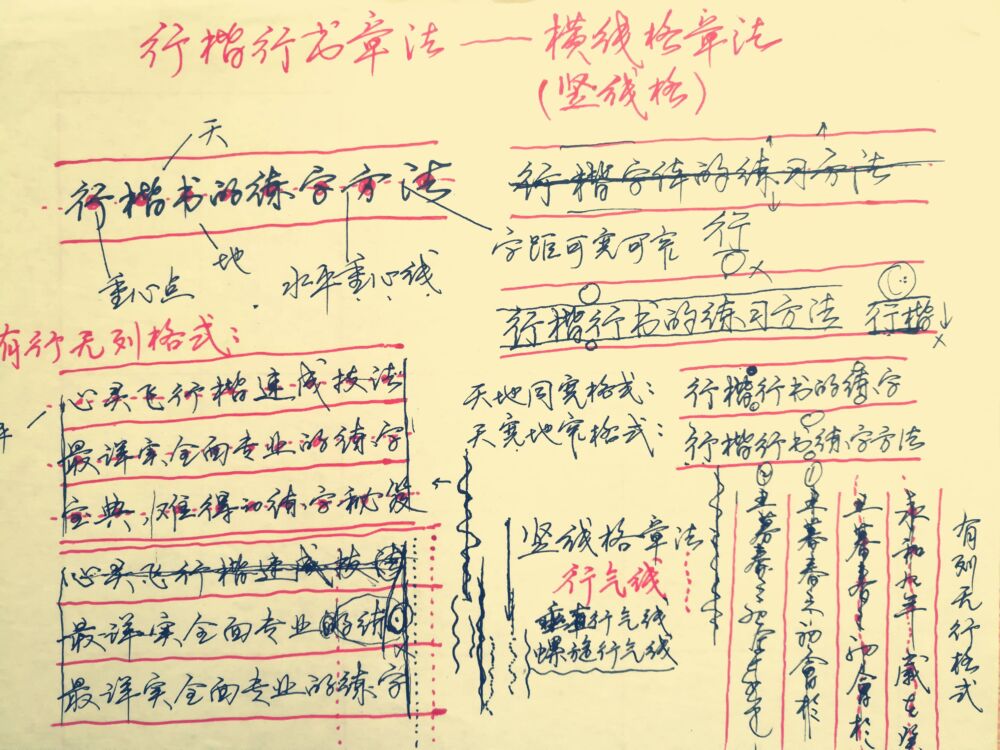 行楷行书章法——横线格章法
(竖线格)
天
行楷书的练字方法
重心点
地
水平重心线
行楷字体的练习方法
字距可宽可窄
行
行楷行书的练习方法
行楷
有行无列格式：
心灵飞行楷速成技法
最详实全面专业的练字
宝典,难得的练字秘笈
心灵飞行楷速成技法
最详实全面专业的练
最详实全面专业的练字
天地同宽格式：
行楷行书的练字
天宽地窄格式：
行楷行书练字方法
竖线格章法
行气线
垂直行气线
螺旋行气线
有列无行格式
永和九年 岁在癸
丑暮春之初会于
丑暮春之初会于
丑暮春之初会于